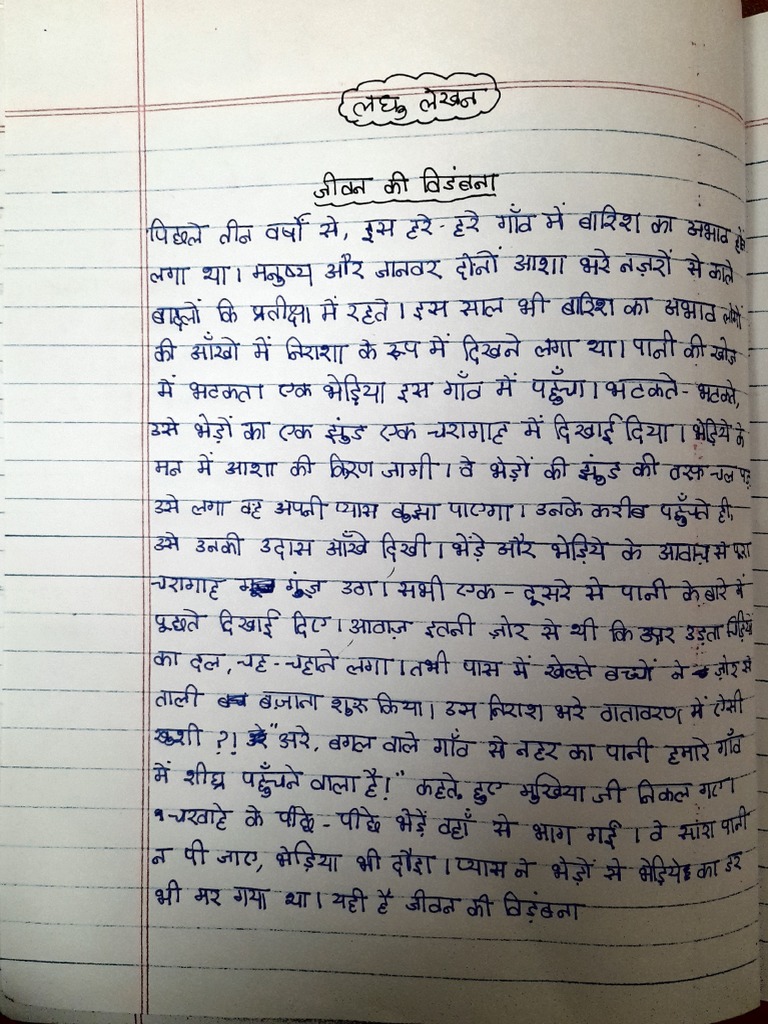 लघु लेखन
जीवन की विडंबना
पिछले तीन वर्षों से, इस हरे-हरे गाँव में बारिश का अभाव होने
लगा था। मनुष्य और जानवर दोनों आशा भरे नज़रों से काले
बादलों कि प्रतीक्षा में रहते। इस साल भी बारिश का अभाव लोगों
की आँखो में निराशा के रूप में दिखने लगा था। पानी की खोज
में भटकता एक भेड़िया इस गाँव में पहुँचा। भटकते-भटकते,
उसे भेड़ों का एक झुंड एक चरागाह में दिखाई दिया। भेड़िये के
मन में आशा की किरण जागी। वे भेड़ों की झुंड की तरफ चल पड़
उसे लगा वह अपनी प्यास बुझा पाएगा। उनके करीब पहुँचते ही,
उसे उनकी उदास आँखे दिखी। भेंड़े और भेड़िये के आवाज़ से पूरा
चरागाह गूंज उठा। सभी एक-दूसरे से पानी के बारे में
पूछते दिखाई दिए। आवाज़ इतनी ज़ोर से थी कि ऊपर उड़ता चिड़ियों
का दल, चह-चहाने लगा। तभी पास में खेलते बच्चों ने ज़ोर से
ताली बजाना शुरू किया। उस निराश भरे वातावरण में ऐसी
खुशी ?! "अरे, बगल वाले गाँव से नहर का पानी हमारे गाँव
में शीघ्र पहुँचने वाला है!" कहते हुए मुखिया जी निकल गए।
चरवाहे के पीछे-पीछे भेड़ें वहाँ से भाग गई। वे सारा पानी
न पी जाए, भेड़िया भी दौड़ा। प्यास ने भेड़ों से भेड़िये का डर
भी मर गया था। यही है जीवन की विड़ंबना